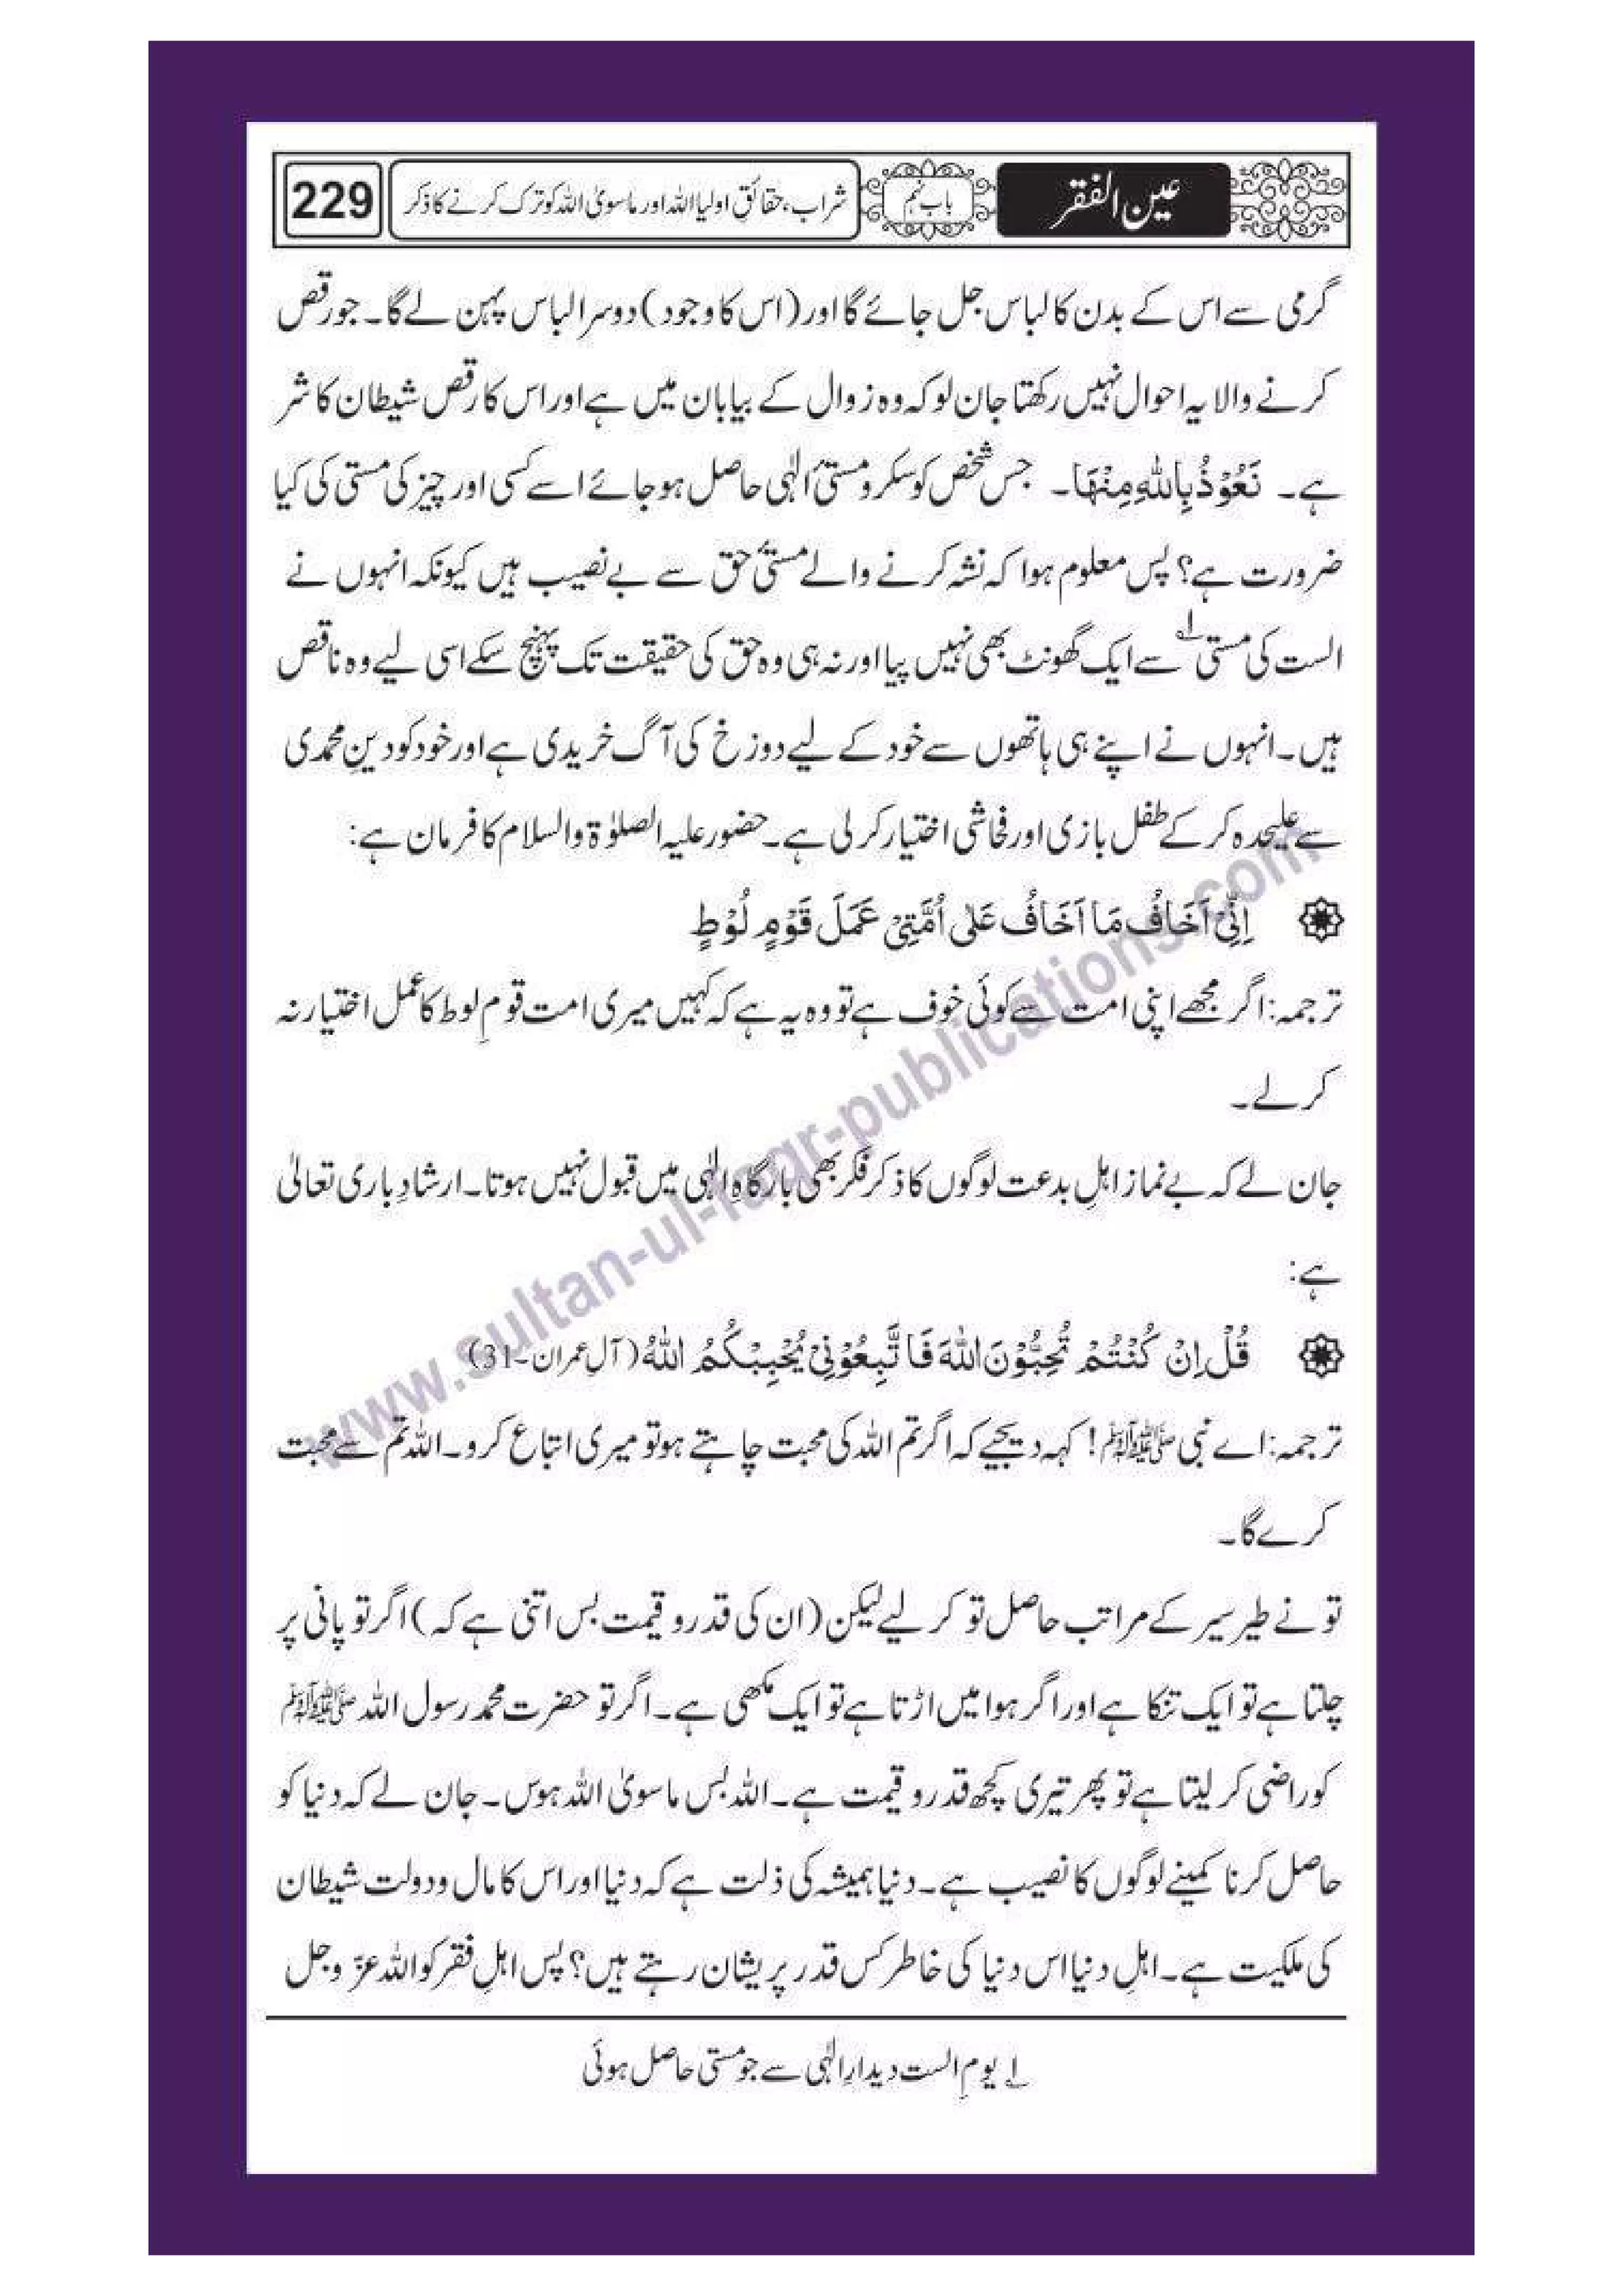 عین الفقر باب نہم شراب، حقائقِ اولیا اللہ اور ماسویٰ اللہ کو ترک کرنے کا ذکر 229
گرمی سے اس کے بدن کا لباس جل جائے گا اور (اس کا وجود) دوسرا لباس پہن لے گا۔ جو رقص
کرنے والا یہ احوال نہیں رکھتا جان لو کہ وہ زوال کے بیابان میں ہے اور اس کا رقص شیطان کا شر
ہے۔ نَعُوْذُ بِاللّٰهِ مِنْهَا۔ جس شخص کو سکر و مستیٔ الٰہی حاصل ہو جائے اسے کسی اور چیز کی مستی کی کیا
ضرورت ہے؟ پس معلوم ہوا کہ نشہ کرنے والے مستیٔ حق سے بے نصیب ہیں کیونکہ انہوں نے
الست کی مستی ۱ سے ایک گھونٹ بھی نہیں پیا اور نہ ہی وہ حق کی حقیقت تک پہنچ سکے اسی لیے وہ ناقص
ہیں۔ انہوں نے اپنے ہی ہاتھوں سے خود کے لیے دوزخ کی آگ خریدی ہے اور خود کو دینِ محمدی
سے علیحدہ کر کے طفل بازی اور فحاشی اختیار کر لی ہے۔ حضور علیہ الصلوٰۃ والسلام کا فرمان ہے:
اِنِّیْ اَخَافُ مَا اَخَافُ عَلٰی اُمَّتِیْ عَمَلَ قَوْمِ لُوْطٍ
ترجمہ: اگر مجھے اپنی امت سے کوئی خوف ہے تو وہ یہ ہے کہ کہیں میری امت قومِ لوط کا عمل اختیار نہ
کر لے۔
جان لے کہ بے نماز اہلِ بدعت لوگوں کا ذکر فکر بھی بارگاہِ الٰہی میں قبول نہیں ہوتا۔ ارشادِ باری تعالیٰ
ہے:
قُلْ اِنْ كُنْتُمْ تُحِبُّوْنَ اللّٰهَ فَاتَّبِعُوْنِیْ یُحْبِبْكُمُ اللّٰهُ (آلِ عمران۔31)
ترجمہ: اے نبی ﷺ! کہہ دیجیے کہ اگر تم اللہ کی محبت چاہتے ہو تو میری اتباع کرو۔ اللہ تم سے محبت
کرے گا۔
تو نے طیر سیر کے مراتب حاصل تو کر لیے لیکن (ان کی قدر و قیمت بس اتنی ہے کہ) اگر تو پانی پر
چلتا ہے تو ایک تنکا ہے اور اگر ہوا میں اڑتا ہے تو ایک مکھی ہے۔ اگر تو حضرت محمد رسول اللہ ﷺ
کو راضی کر لیتا ہے تو پھر تیری کچھ قدر و قیمت ہے۔ اللہ بس ماسویٰ اللہ ہوس۔ جان لے کہ دنیا کو
حاصل کرنا کمینے لوگوں کا نصیب ہے۔ دنیا ہمیشہ کی ذلت ہے کہ دنیا اور اس کا مال و دولت شیطان
کی ملکیت ہے۔ اہلِ دنیا اس دنیا کی خاطر کس قدر پریشان رہتے ہیں؟ پس اہلِ فقر کو اللہ عزّ وجل
۱ یومِ الست دیدارِ الٰہی سے جو مستی حاصل ہوئی
www.sultan-ul-faqr-publications.com